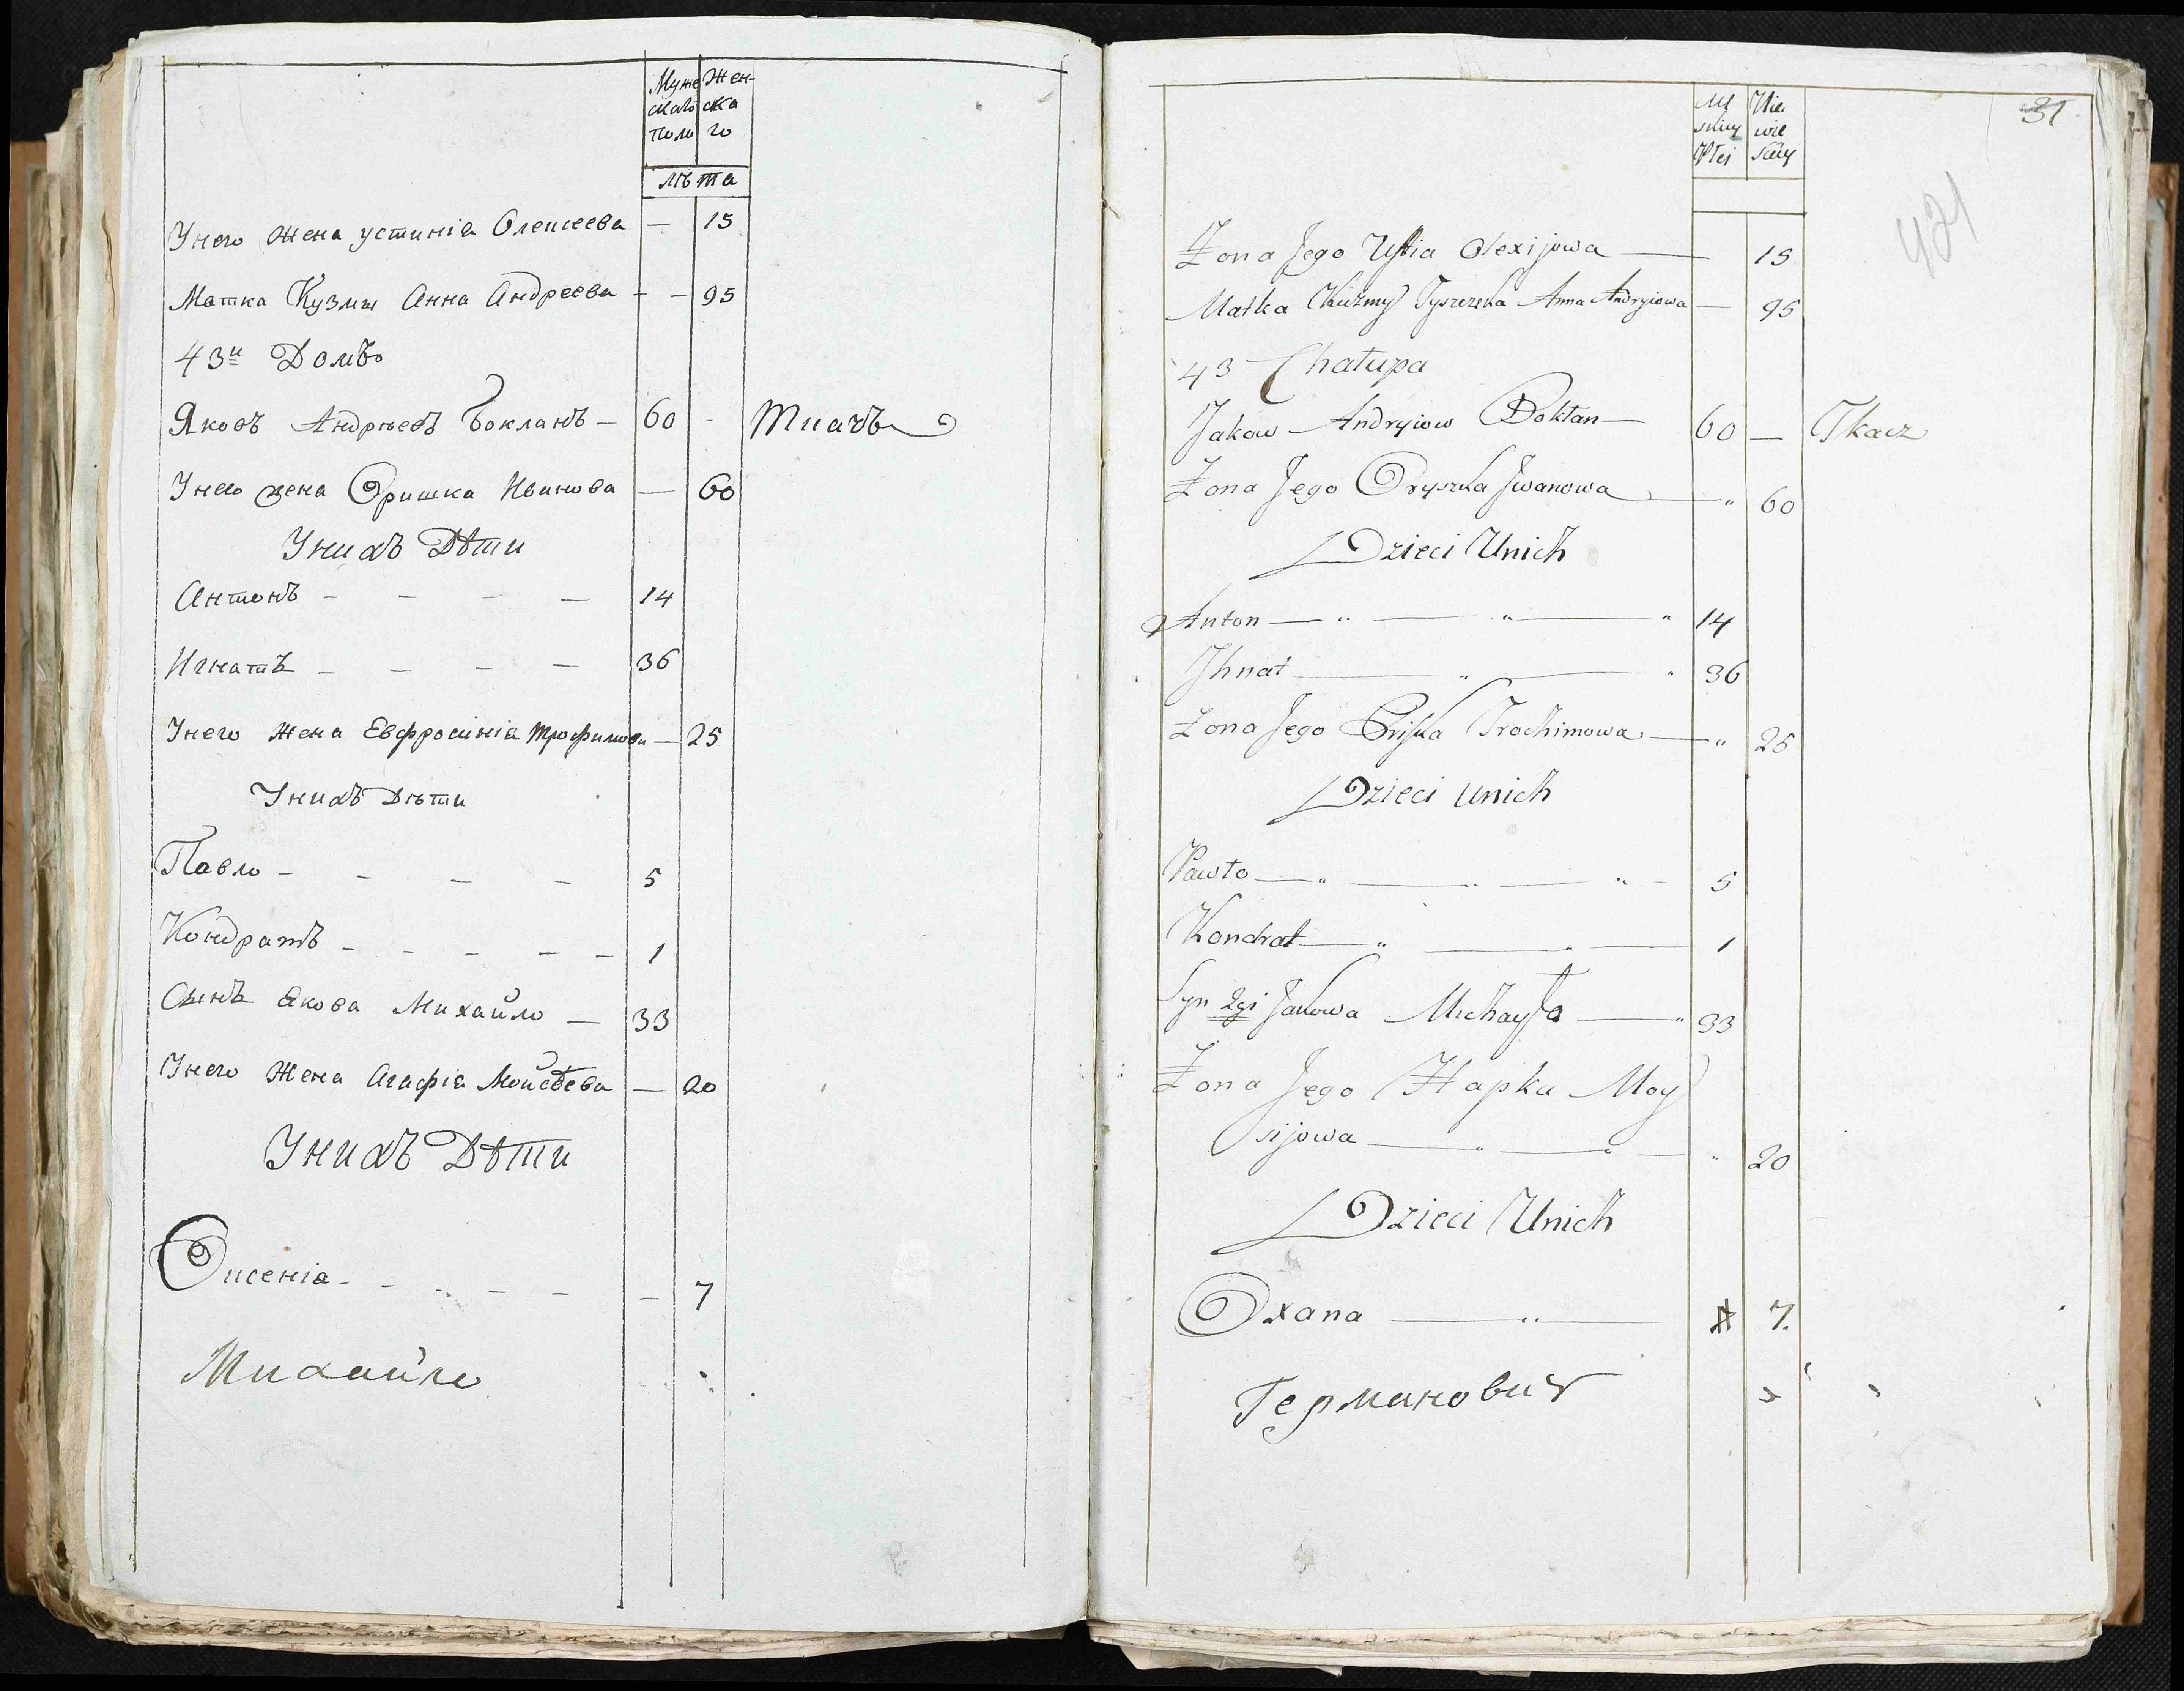 Муже Жен-
скаго ска
полу го
лѣта
Унего жена устинія Олексеева — 15
Матка Кузмы Анна Андреева - - 95
43й Домъ
Яковъ Андрѣевъ Бокланъ — 60 - Ткачъ
Унего жена Оришка Иванова — 60
Унихъ Дѣти
Антонъ - - - — 14
Игнатъ - - - - 36
Унего жена Евфросинія Трофимова — 25
Унихъ Дѣти
Павло - - - - 5
Кондратъ - - - - - 1
Сынъ Якова Михайло — 33
Унего жена Агафія Мойсѣева — 20
Унихъ Дѣти
Оксенія - - - - - - 7
Михайло
31
421
Żona Jego Ustia Olexijowa — 15
Matka Kuźmy Tyszczska Anna Andryiowa — 95
43 Chałupa
Jakow Andryiow Bokłan — 60 — Tkacz
Żona Jego Oryszka Jwanowa — " 60
Dzieci Unich
Anton — " — " — " 14
Jhnat — " — " 36
Żona Jego Priska Trochimowa — " 25
Dzieci unich
Pawło — " — " — " - 5
Kondrat — " — " — 1
Syn 2gi Jakowa Michayło — " 33
Żona Jego Hapka Moy
sijowa — " — " — " 20
Dzieci Unich
Oxana — " — 7.
Германович